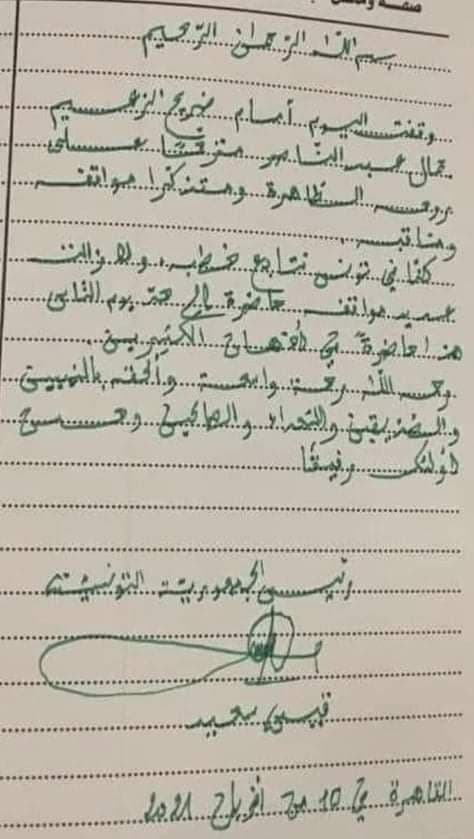 بسم الله الرحمان الرّحيم
وقفت اليوم أمام ضريح الزعيم
جمال عبد الناصر مترحّما على
روحه الطاهرة ومستذكرا مواقفه
ومناقبه.
كنّا في تونس نتابع خطبه، ولا زالت
عديد مواقفه حاضرة إلى حدّ يوم الناس
هذا حاضرة في أذهان الكثيرين.
رحمه الله رحمة واسعة وألحقه بالنبيين
والصدّيقين والشهداء والصالحين وحسن
أولئك رفيقا
رئيس الجمهوريّة التونسيّة
قيس سعيد
القاهرة في 10 من أفريل 2021